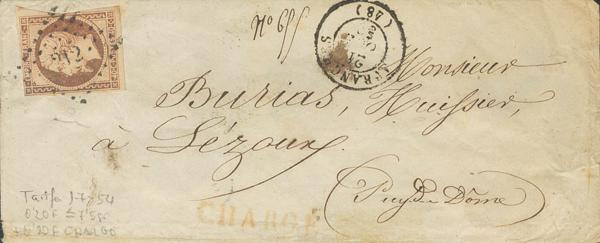 No 655
(48)
Monsieur
Burias, Huissier,
à Lézoux.
(Puy de Dôme)
CHARGÉ
Tarifa 1-7-54
0'20F ≤ 7'5gr
+0'20F CHARGÉ